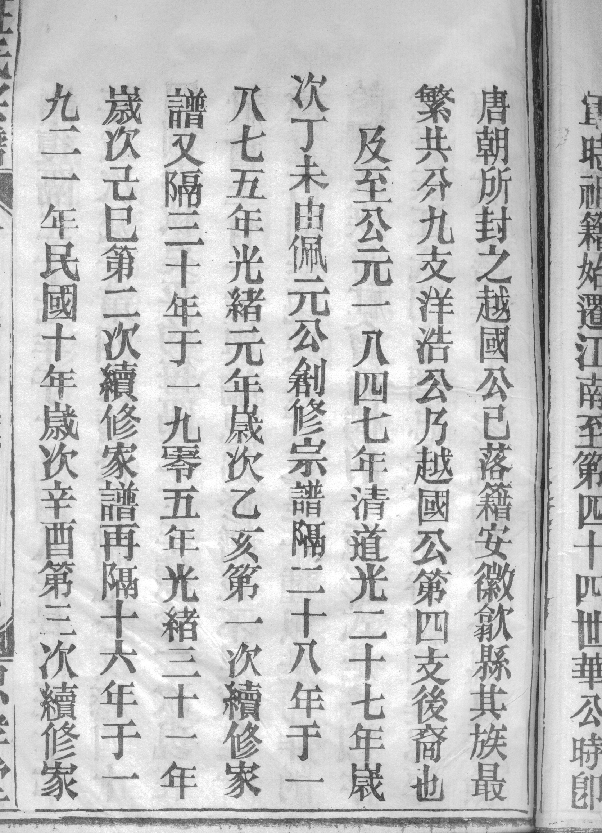 時祖籍始遷江南至第四十四世華公時卽
唐朝所封之越國公已落籍安徽歙縣其族最
繁共分九支洋浩公乃越國公第四支後裔也
及至公元一八四七年清道光二十七年歲
次丁未由佩元公創修宗譜隔二十八年于一
八七五年光緒元年歲次乙亥第一次續修家
譜又隔三十年于一九零五年光緒三十一年
歲次己巳第二次續修家譜再隔十六年于一
九二一年民國十年歲次辛酉第三次續修家